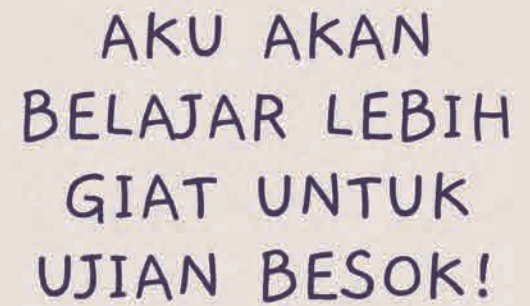 AKU AKAN
BELAJAR LEBIH
GIAT UNTUK
UJIAN BESOK!